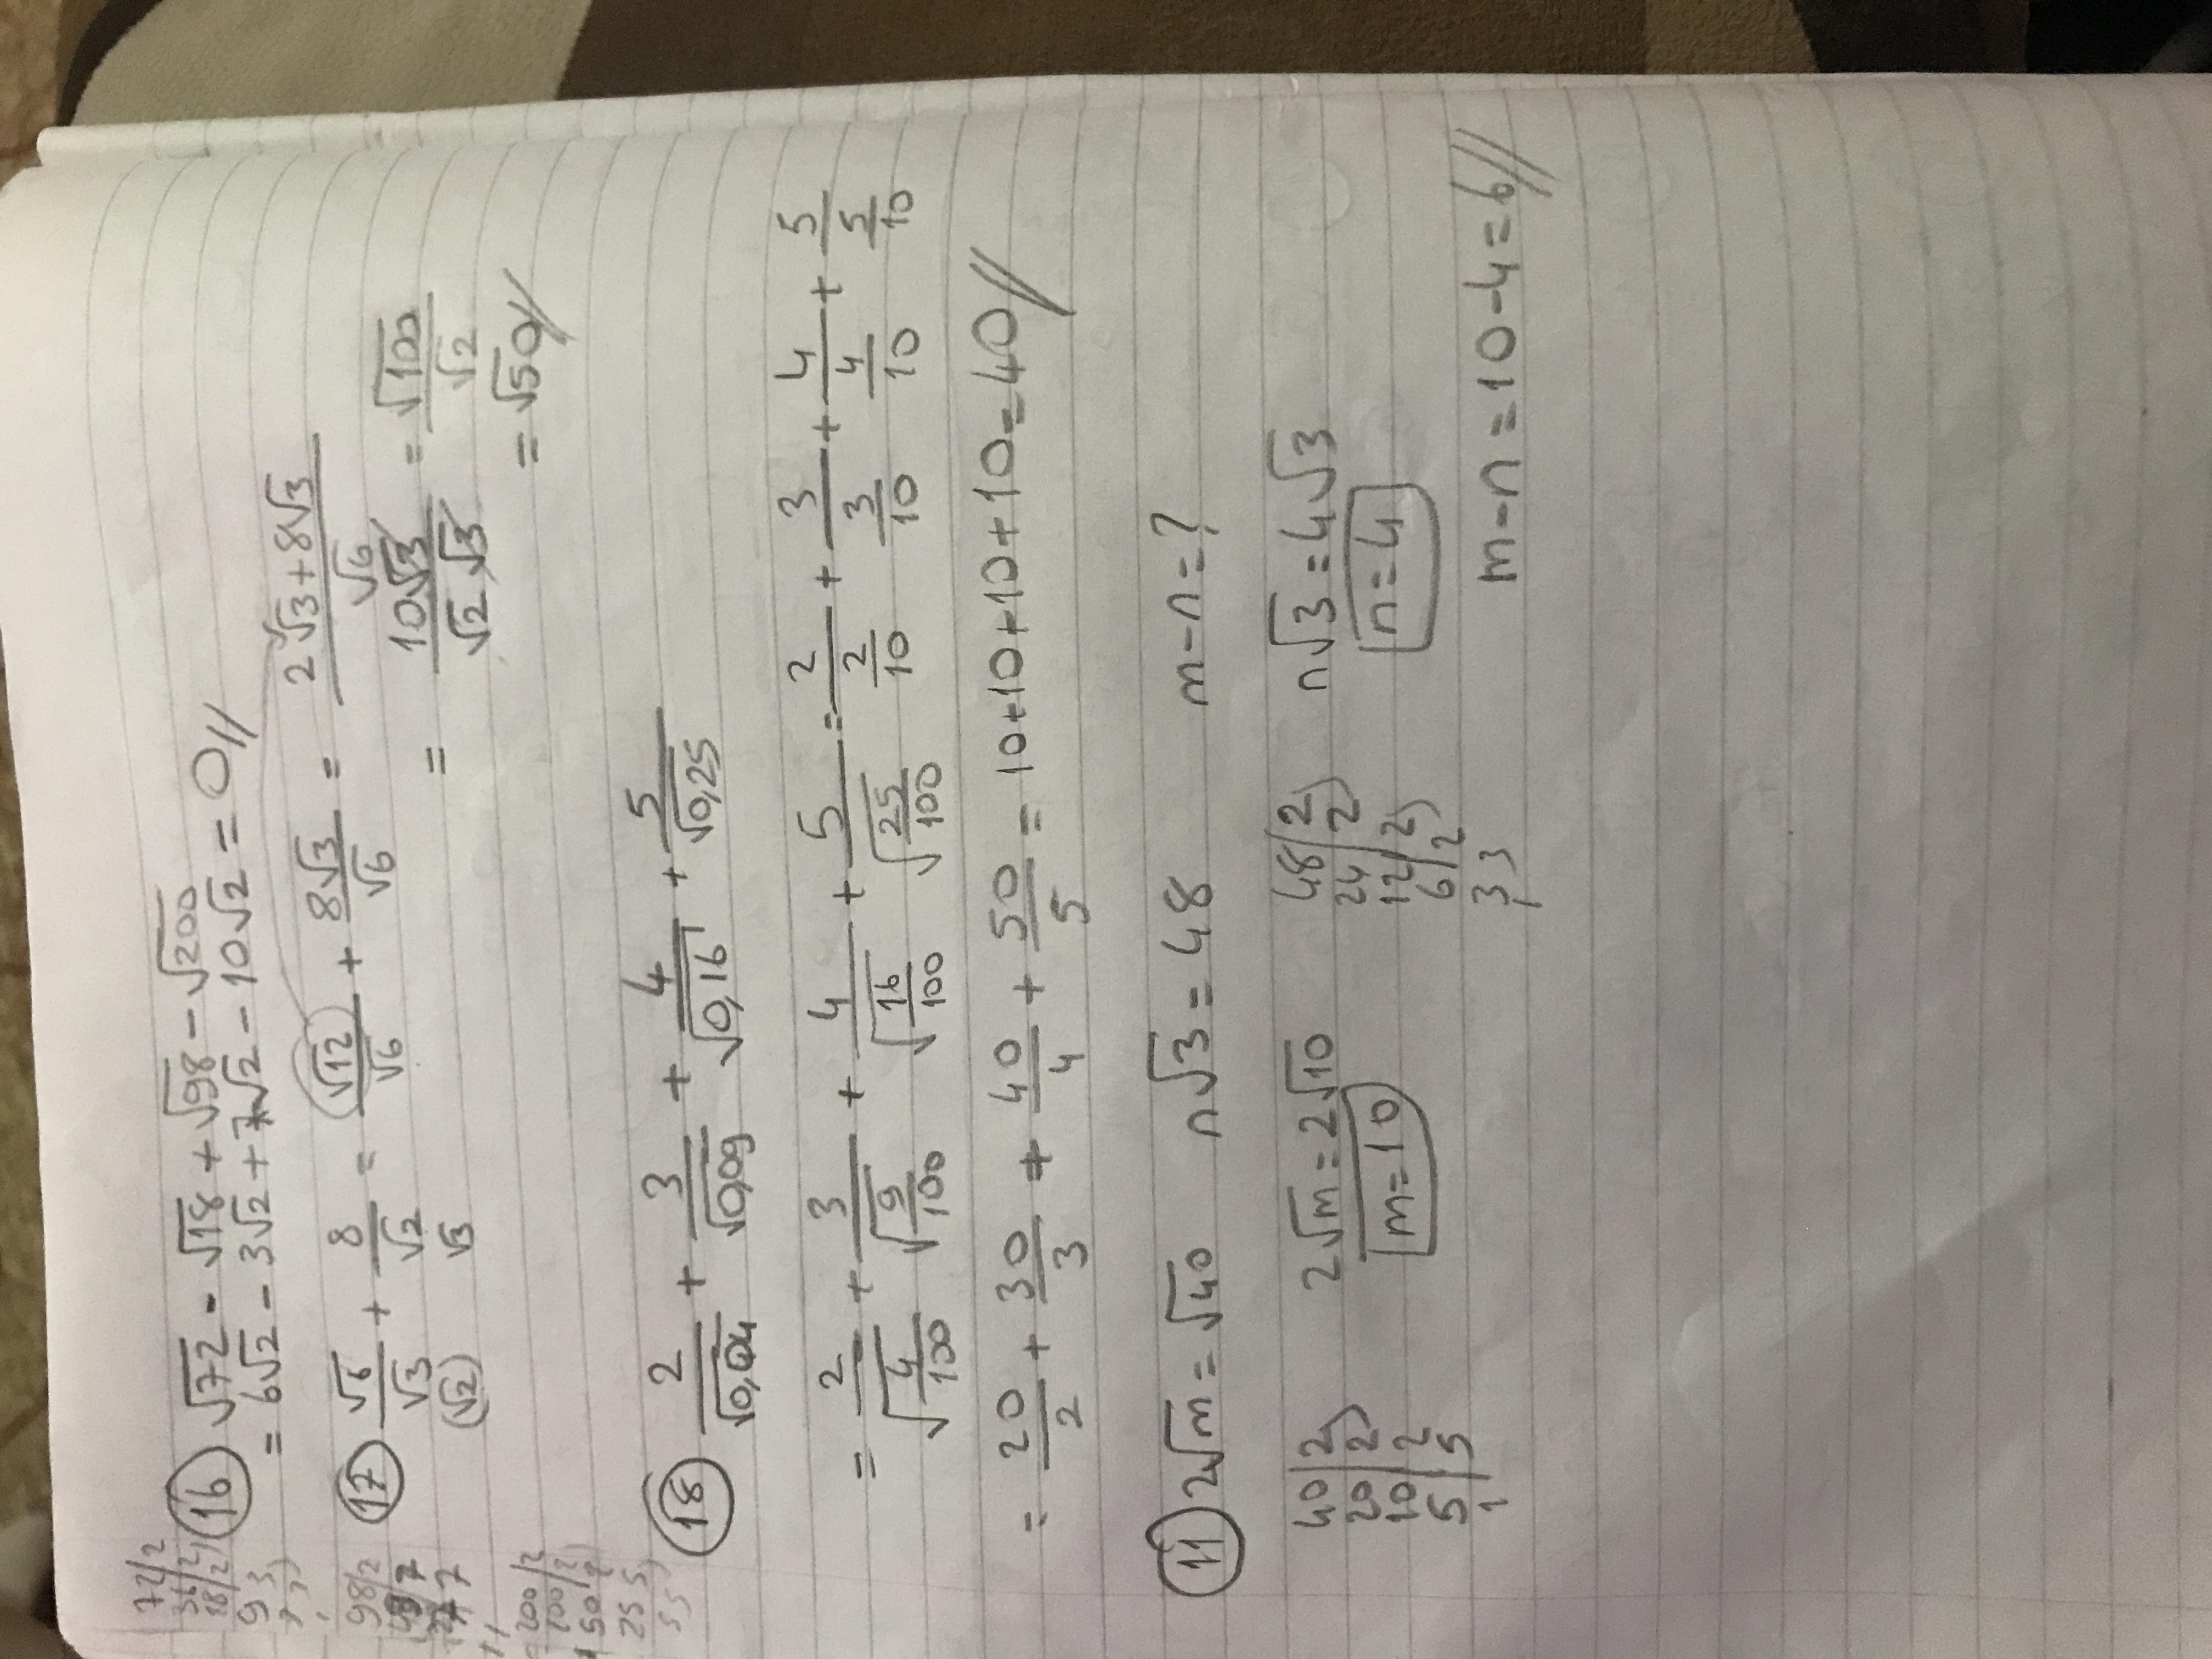 72/2
36/2
18/2
9 3
98/2
200/2
100/2
50 2
25 5
(16) √72 - √18 + √98 - √200
= 6√2 - 3√2 + 7√2 - 10√2 = 0//
(17) √6/√3 + 8/√2 = √12/√6 + 8√3/√6 = 2√3+8√3/√6
(√2) √3
= 10√3/√2.√3 = √100/√2
= √50//
(18) 2/√0,04 + 3/√0,09 + 4/√0,16 + 5/√0,25
= 2/√4/100 + 3/√9/100 + 4/√16/100 + 5/√25/100 = 2/2/10 + 3/3/10 + 4/4/10 + 5/5/10
= 20/2 + 30/3 + 40/4 + 50/5 = 10+10+10+10=40//
(11) 2√m = √40 n√3 = 48 m-n=?
40|2
20|2
10|2
5|5
1
2√m=2√10
m=10
48/2
24/2
12/2
6/2
3 3
n√3=4√3
n=4
m-n=10-4=6//